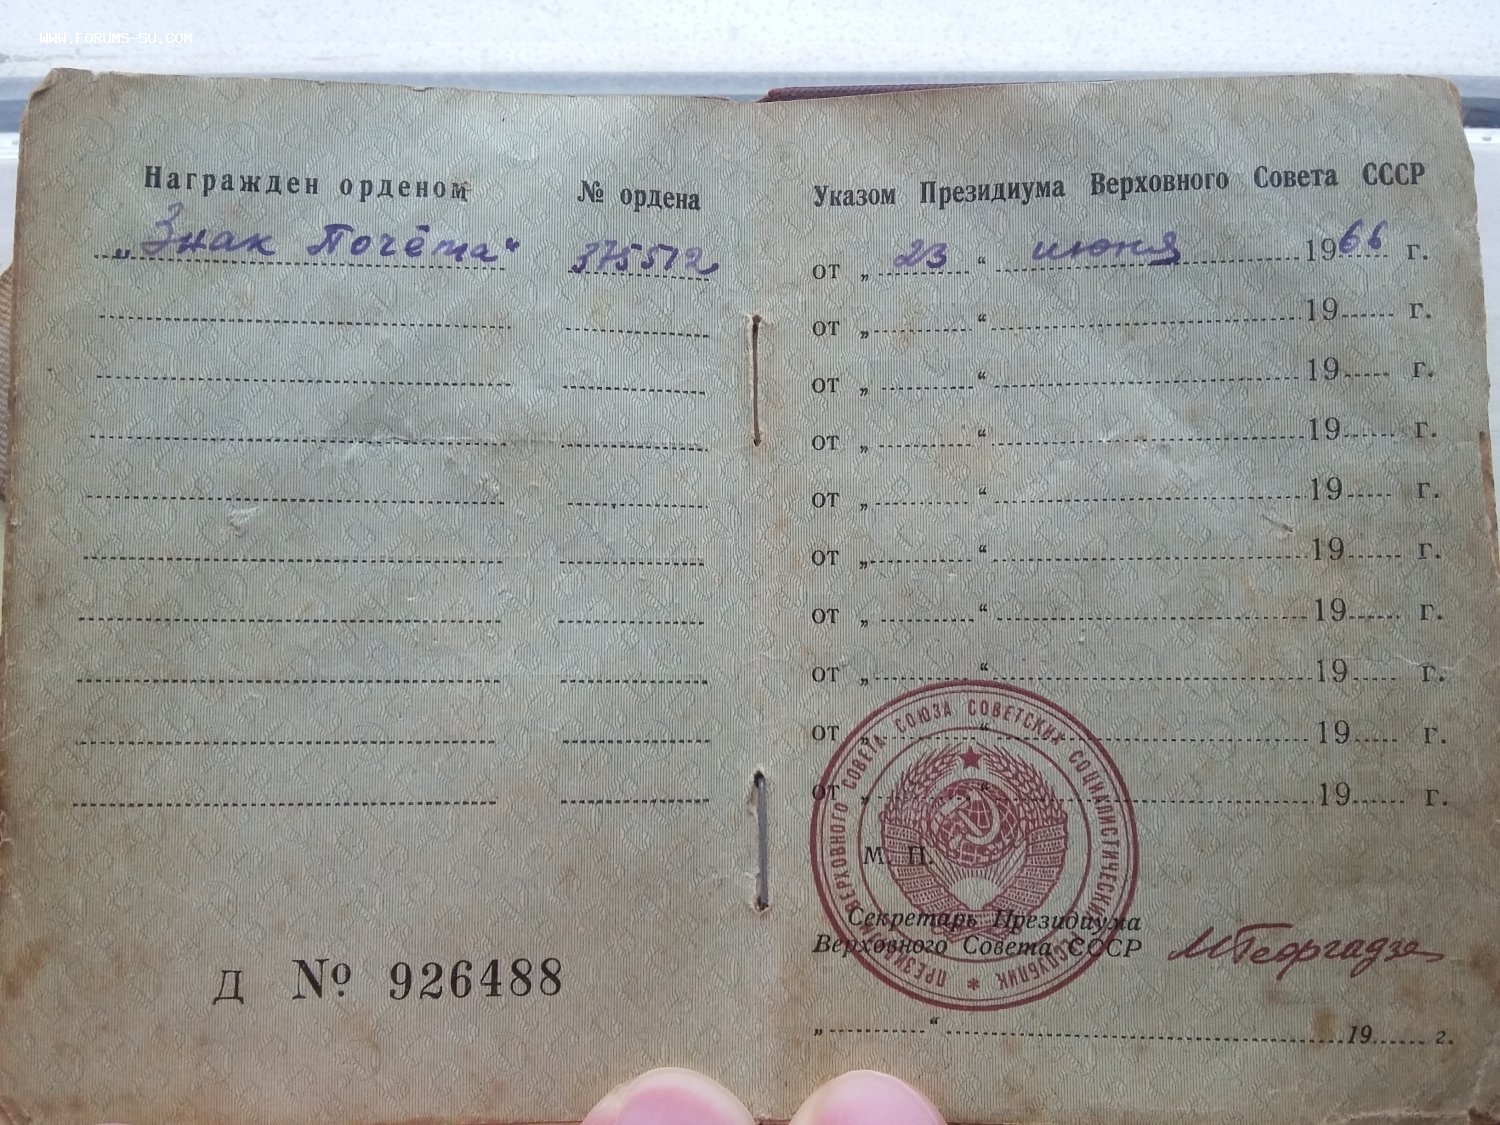 WWW.FORUMS-SU.COM
Награжден орденом № ордена
„Знак Почёта“ 375512
Указом Президиума Верховного Совета СССР
от „ 23 “ июня 1966 г.
от „ “ 19 г.
от „ “ 19 г.
от „ “ 19 г.
от „ “ 19 г.
от „ “ 19 г.
от „ “ 19 г.
от „ “ 19 г.
от „ “ 19 г.
от „ “ 19 г.
М. П.
ПРЕЗИДИУМ ВЕРХОВНОГО СОВЕТА СОЮЗА СОВЕТСКИХ СОЦИАЛИСТИЧЕСКИХ РЕСПУБЛИК *
Секретарь Президиума
Верховного Совета СССР МГеоргадзе
„ “ 19 г.
Д № 926488